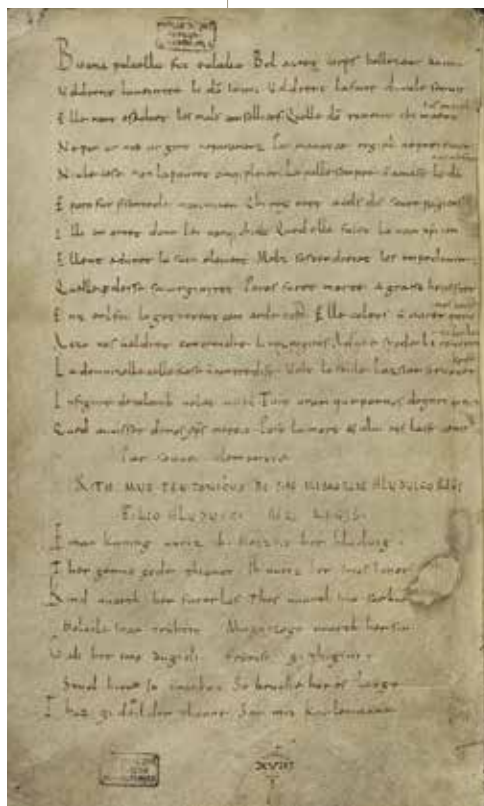 Buona pulcella fut eulalia Bel auret corps bellezour anima
Voldrent la ueintre li dõ Inimi Voldrent la faire diaule seruir
Elle nont eskoltet les mals conselliers Quelle dõ raneiet chi maent
Ne por or ned argent ne paramenz Por manatce regiel ne preiement
Niule cose non la pouret omq pleier La polle sempre n amast lo dõ
E poro fut presentede maximiien Chi rex eret a cels dis soure pagiens
Il li enortet dont lei nonq chielt Qued elle fuiet lo nom xpiien
Ellent adunet lo suon element Melz sostendreiet les empedementz
Quelle perdesse sa uirginitet Poros furet morte a grand honestet
Enz enl fou la getterent com arde tost Elle colpes n auret poro
Aezo nos uoldret concreidre li rex pagiens Ad une spede li roueret
La domnizelle celle kose non contredist Volt lo seule lazsier si ruouet
In figure de colomb uolat a ciel Tuit oram que por nos degnet preier
Qued auuisset de nos xps mercit Post la mort et a lui nos laist uenir
Par souue clementia
RITHMUS TEUTONICUS DE PIAE MEMORIAE HLUDUICO REGE
FILIO HLUDUICI AEQ REGIS.
Einan kuning uueiz ih Heizsit her hluduig
Ther gerno gode thionot Ih uueiz her imos lonot
Kind uuarth her faterlos Thes uuarth imo sar buoz
Holoda inan truhtin Magaczogo uuarth her sin
Gab her imo dugidi Fronisc githigini
Stual hier in urankon So bruche her es lango
Thaz gideilder thanne Sar mit karlemanne
XVIII